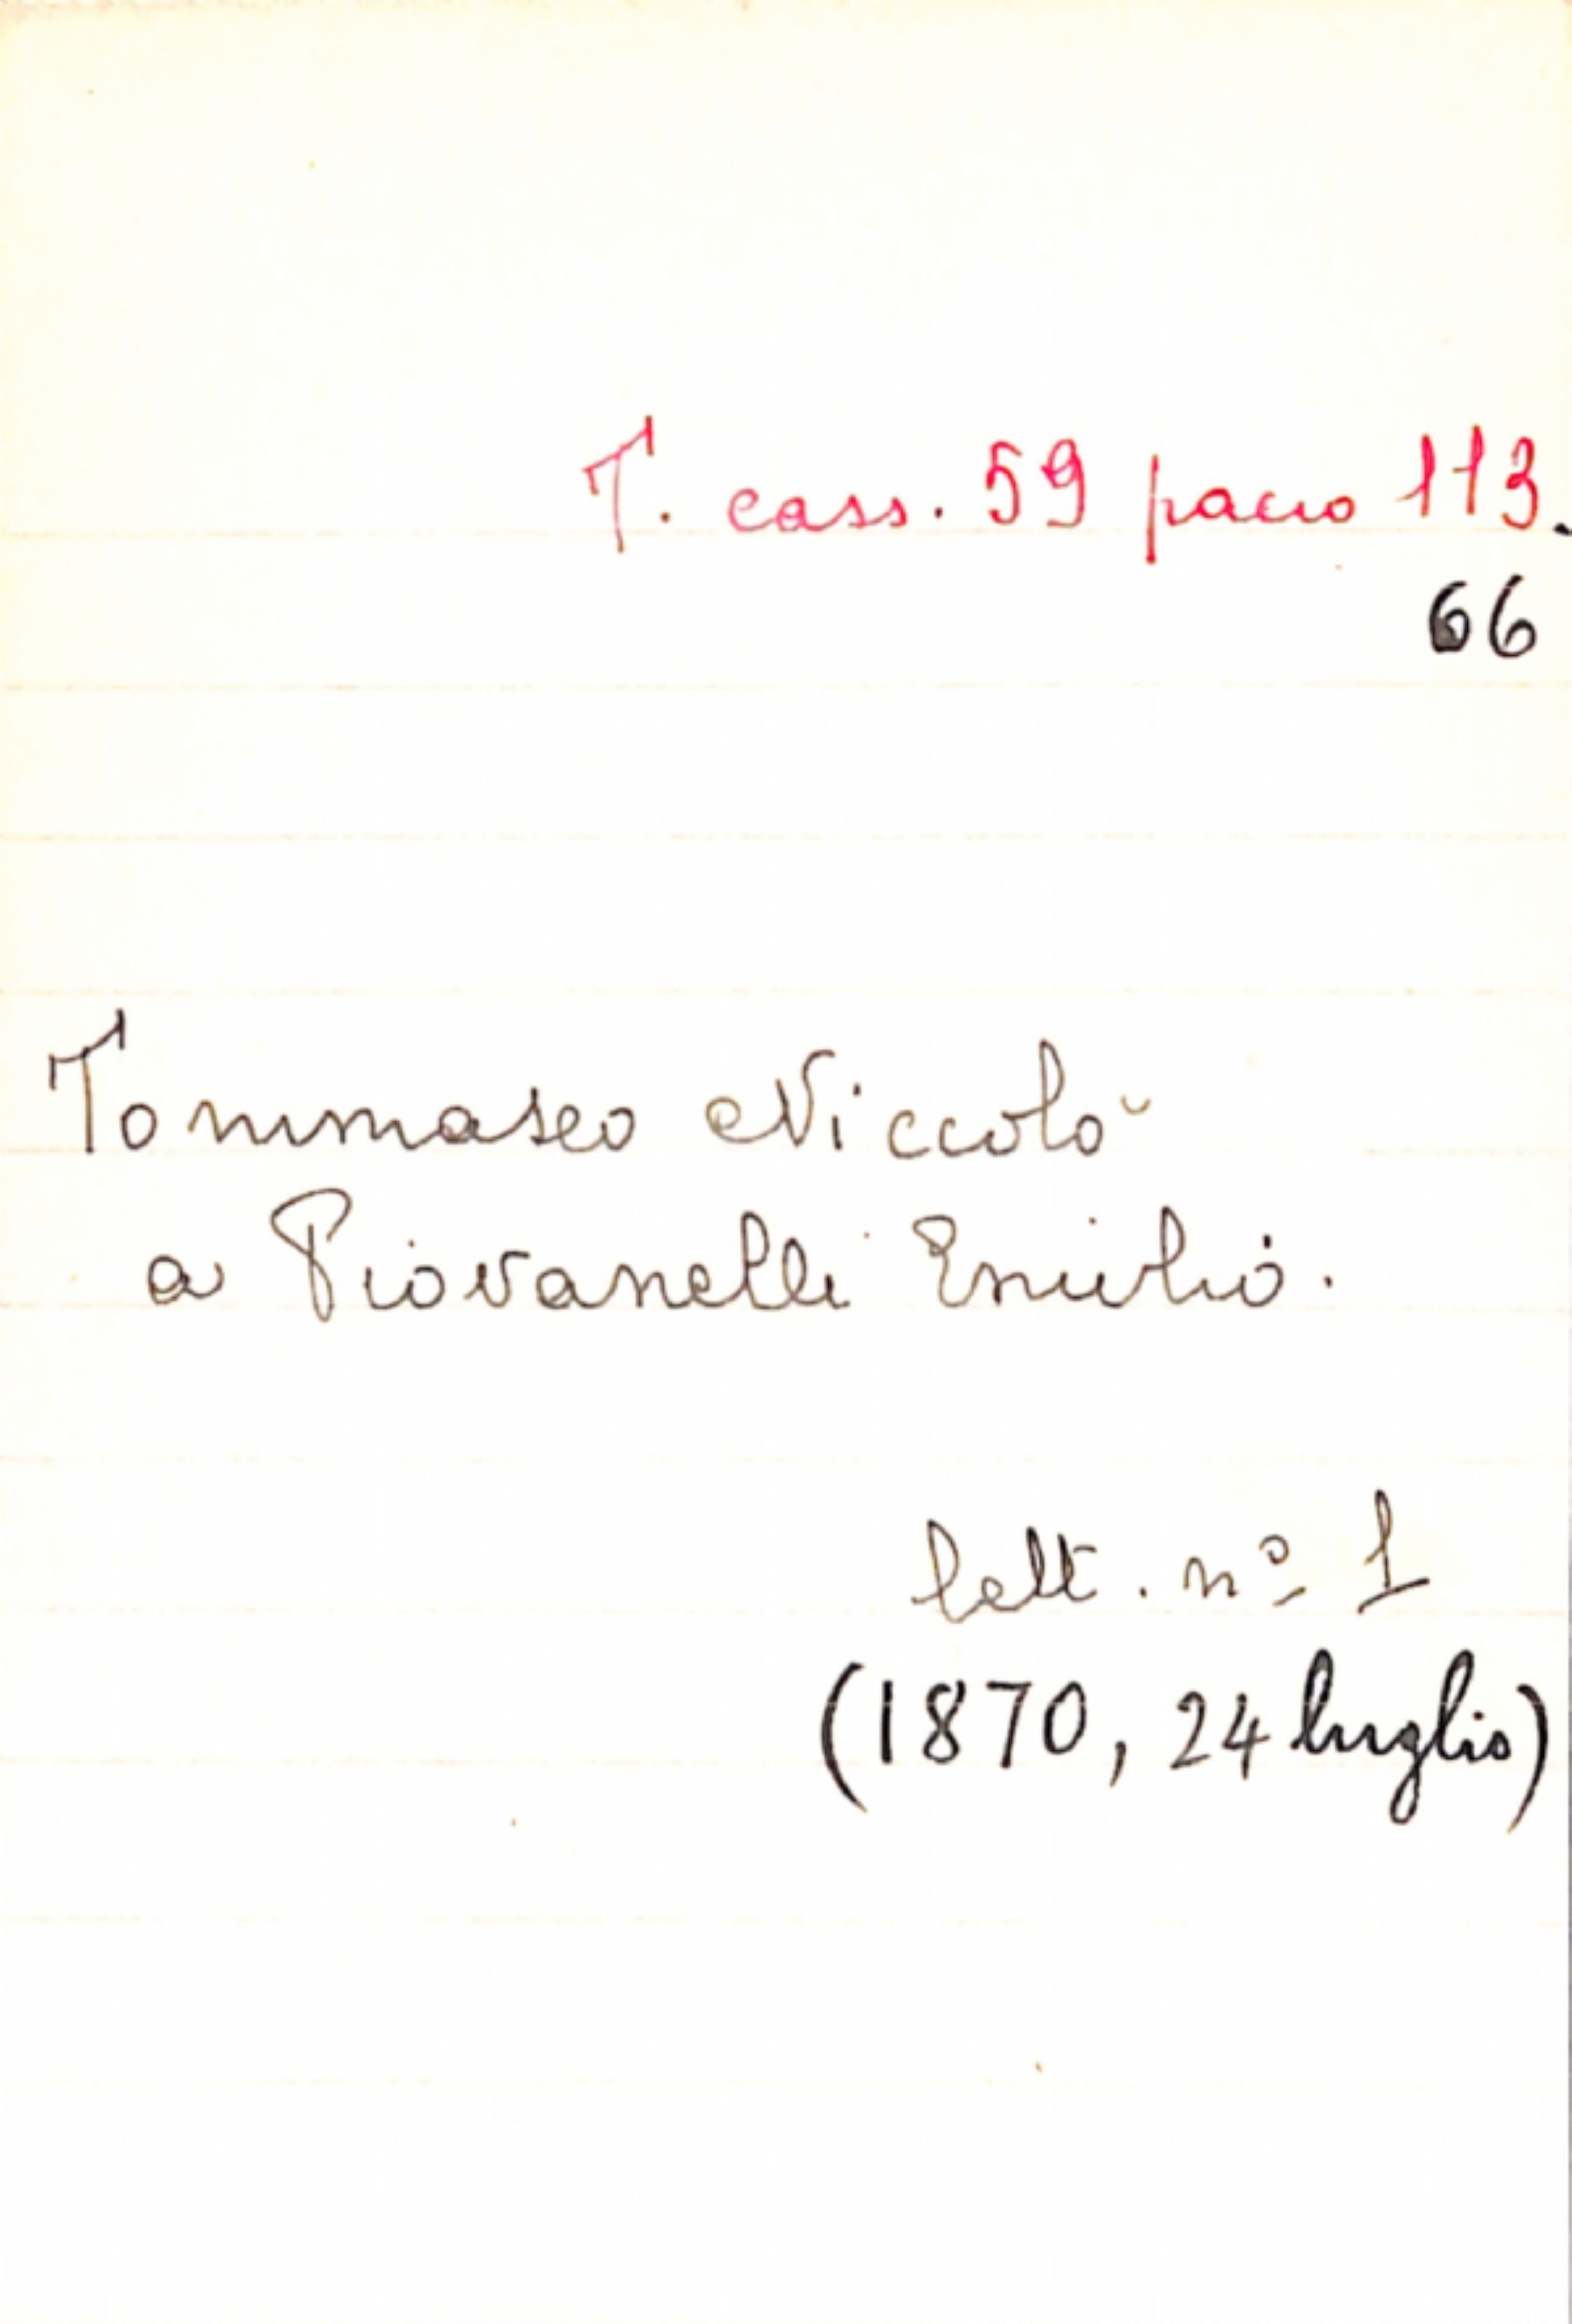 T. cass. 59 pacco 113.
66
Tommaseo Niccolò
a Piovanelli Emilio.
lett. nº 1
(1870, 24 luglio)